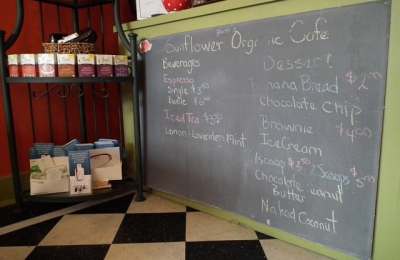 Sunflower Organic Cafe
Beverages
Espresso
Single $3.00
Double $6.00
Iced Tea
Lemon-Lavender Mint
Dessert
nana Bread $2.00
Chocolate Chip
Brownie $4.00
Ice Cream
1 scoop 2 Scoops $5.00
Chocolate Peanut
Butter
Naked Coconut